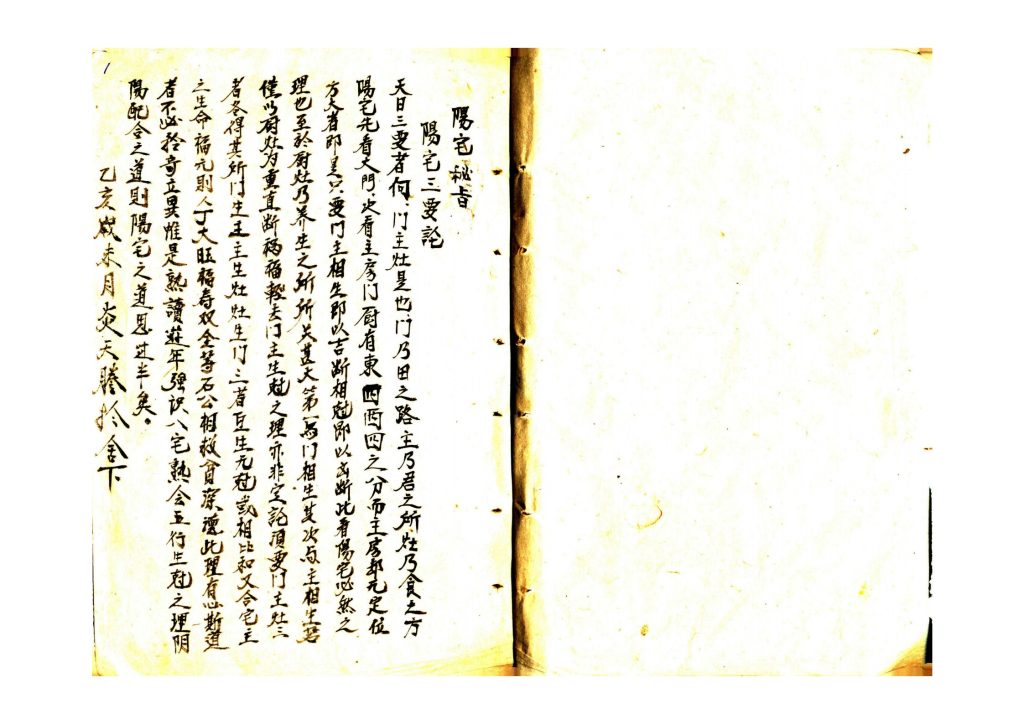 陽宅秘旨
陽宅三要論
夫曰三要者何、門主灶是也、门乃由之路、主乃君之所、灶乃食之方
陽宅先看大門、次看主房门厨有東四酉四之分而主房郄无定位
方大者即是只要門主相生即以吉断相尅即以凶断此看陽宅必然之
理也至於厨灶乃养生之所所关甚大第一与门相生其次与主相生若
僅以厨灶为重直断禍福輕去门主生尅之理亦非定論須要门主灶三
者各得其所门生主主生灶灶生门三者互生无尅或相比和又合宅主
之生命福元則人丁大旺福寿双全等石公相救貧深隱此理有心斯道
者不必矜奇立異惟是熟讀遊年强识八宅熟会五行生尅之理阴
陽配合之道則陽宅之道思过半矣。
乙亥歲未月炎天謄於舍下